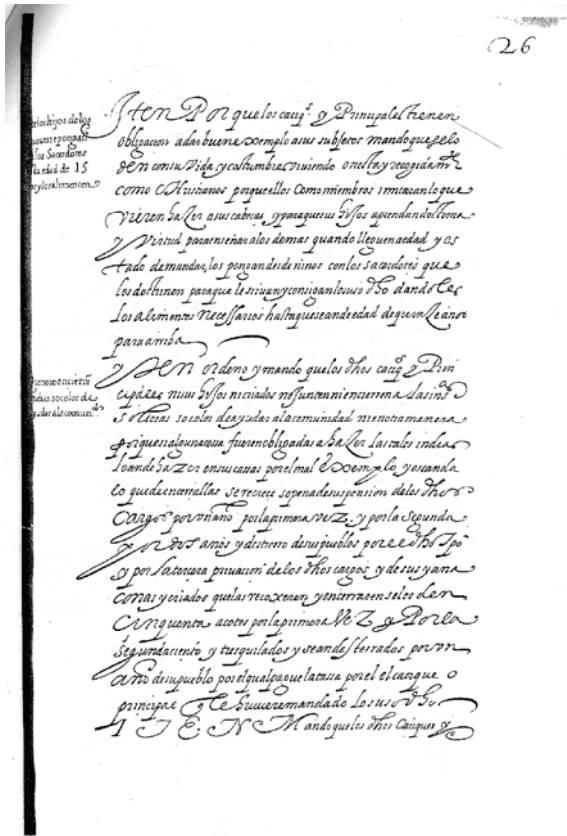 26
Iten Por que los caciqs. y Principales tienen
obligacion a dar buen exemplo a sus subjetos mando que se lo
den con su Vida y costumbre viviendo onesta y recogidamte.
como christianos porque ellos como miembros immitaran lo que
vieren hazer a sus cabeças, y para que sus hijos aprendan doctrina
y Virtud para enseñar a los demas quando lleguen a edad y es
tado de mandar, los pongan desde niños con los sacerdotes que
los doctrinen para que les sirvan y consigan lo suso dho dandoles
los alimentos necessarios hasta que sean de edad de quinze años
para arriba
y Iten ordeno y mando que los dhos caciqs. y Prin
cipales ni sus hijos ni criados no junten ni encierren a las inds.
solteras so color de ayudas a la comunidad ni en otra manera
porque si alguna cossa fueren obligadas a hazer las tales indias
lo an de hazer en sus cassas por el mal exemplo, y escanda
lo que de encerrallas se recrece so pena de suspension de los dhos
Cargos por un año por la primera vez, y por la segunda
por dos años y destierro de sus pueblos por el dho tpo
y por la tercera privacion de los dhos cargos, y de sus yana
conas y criados que las recoxeren y encerraren se les den
cinquenta açotes por la primera vez y Por la
segunda ciento y tresquilados y sean desterrados por un
año de su pueblo por el qual pague la tassa por el el cacique o
principal q le huviere mandado lo suso dho
ITEN Mando que los dhos Caciques y
los hijos de los
se pongan
los Sacerdotes
ta edad de 15
os y los alimenten
no encierrē
indias so color de
ayudar a la comunidd.